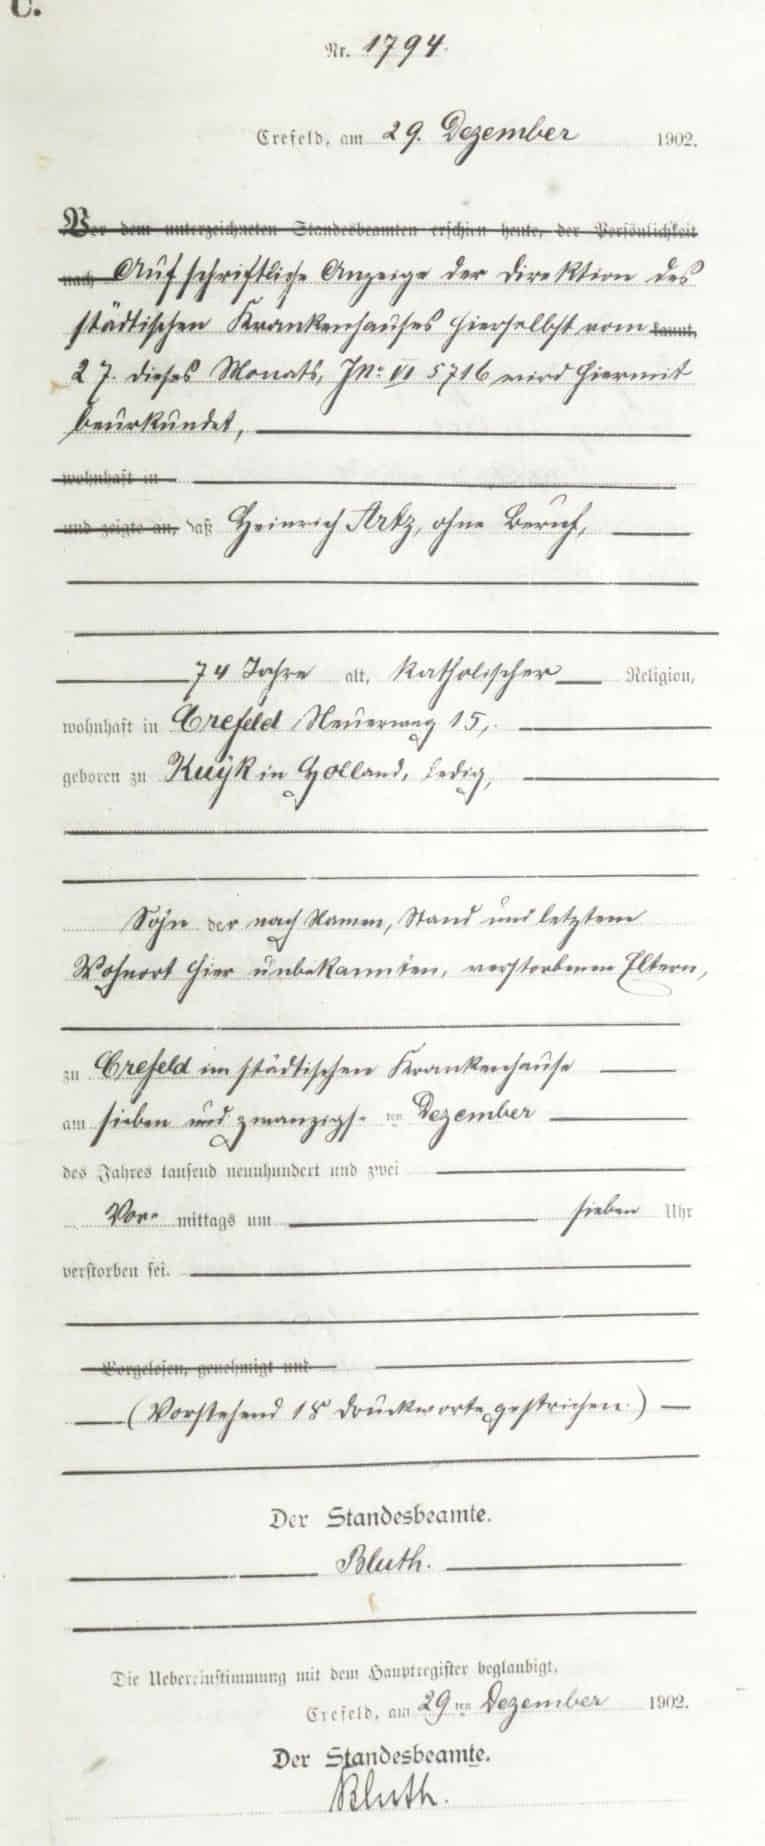 C.
Nr. 1794.
Crefeld, am 29. Dezember 1902.
Vor dem unterzeichneten Standesbeamten erschien heute, der Persönlichkeit
nach Auf schriftliche Anzeige der Direktion des
städtischen Krankenhauses hierselbst vom kannt,
27. dieses Monats, JNo. VI 5716 wird hiermit
beurkundet,
wohnhaft in
und zeigte an, daß Heinrich Artz, ohne Beruf,
74 Jahre alt, katholischer Religion,
wohnhaft in Crefeld Neuerweg 15,
geboren zu Kuijk in Holland, ledig,
Sohn der nach Namen, Stand und letztem
Wohnort hier unbekannten, verstorbenen Eltern,
zu Crefeld im städtischen Krankenhause
am sieben und zwanzigs- ten Dezember
des Jahres tausend neunhundert und zwei
Vor- mittags um sieben Uhr
verstorben sei.
Vorgelesen, genehmigt und
(Vorstehend 18 Druckworte gestrichen.)
Der Standesbeamte.
Bluth.
Die Uebereinstimmung mit dem Hauptregister beglaubigt,
Crefeld, am 29 ten Dezember 1902.
Der Standesbeamte.
Bluth.